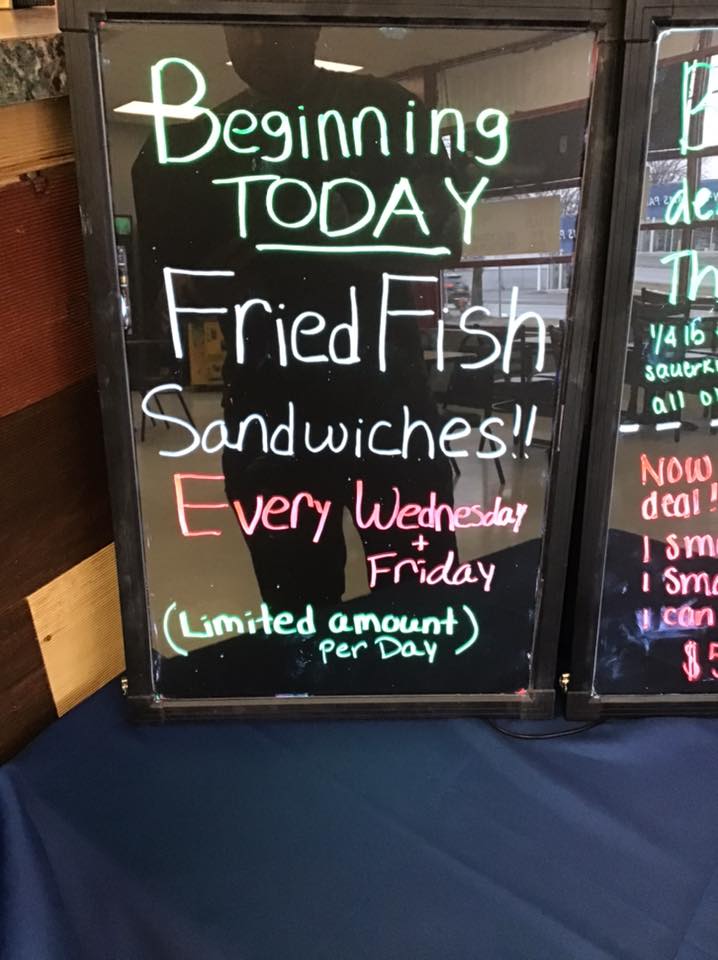 Beginning
TODAY
Fried Fish
Sandwiches!!
Every Wednesday
+
Friday
(Limited amount)
per Day
de
Th
1/4 lb
all
Now
deal!
1
1
1 can